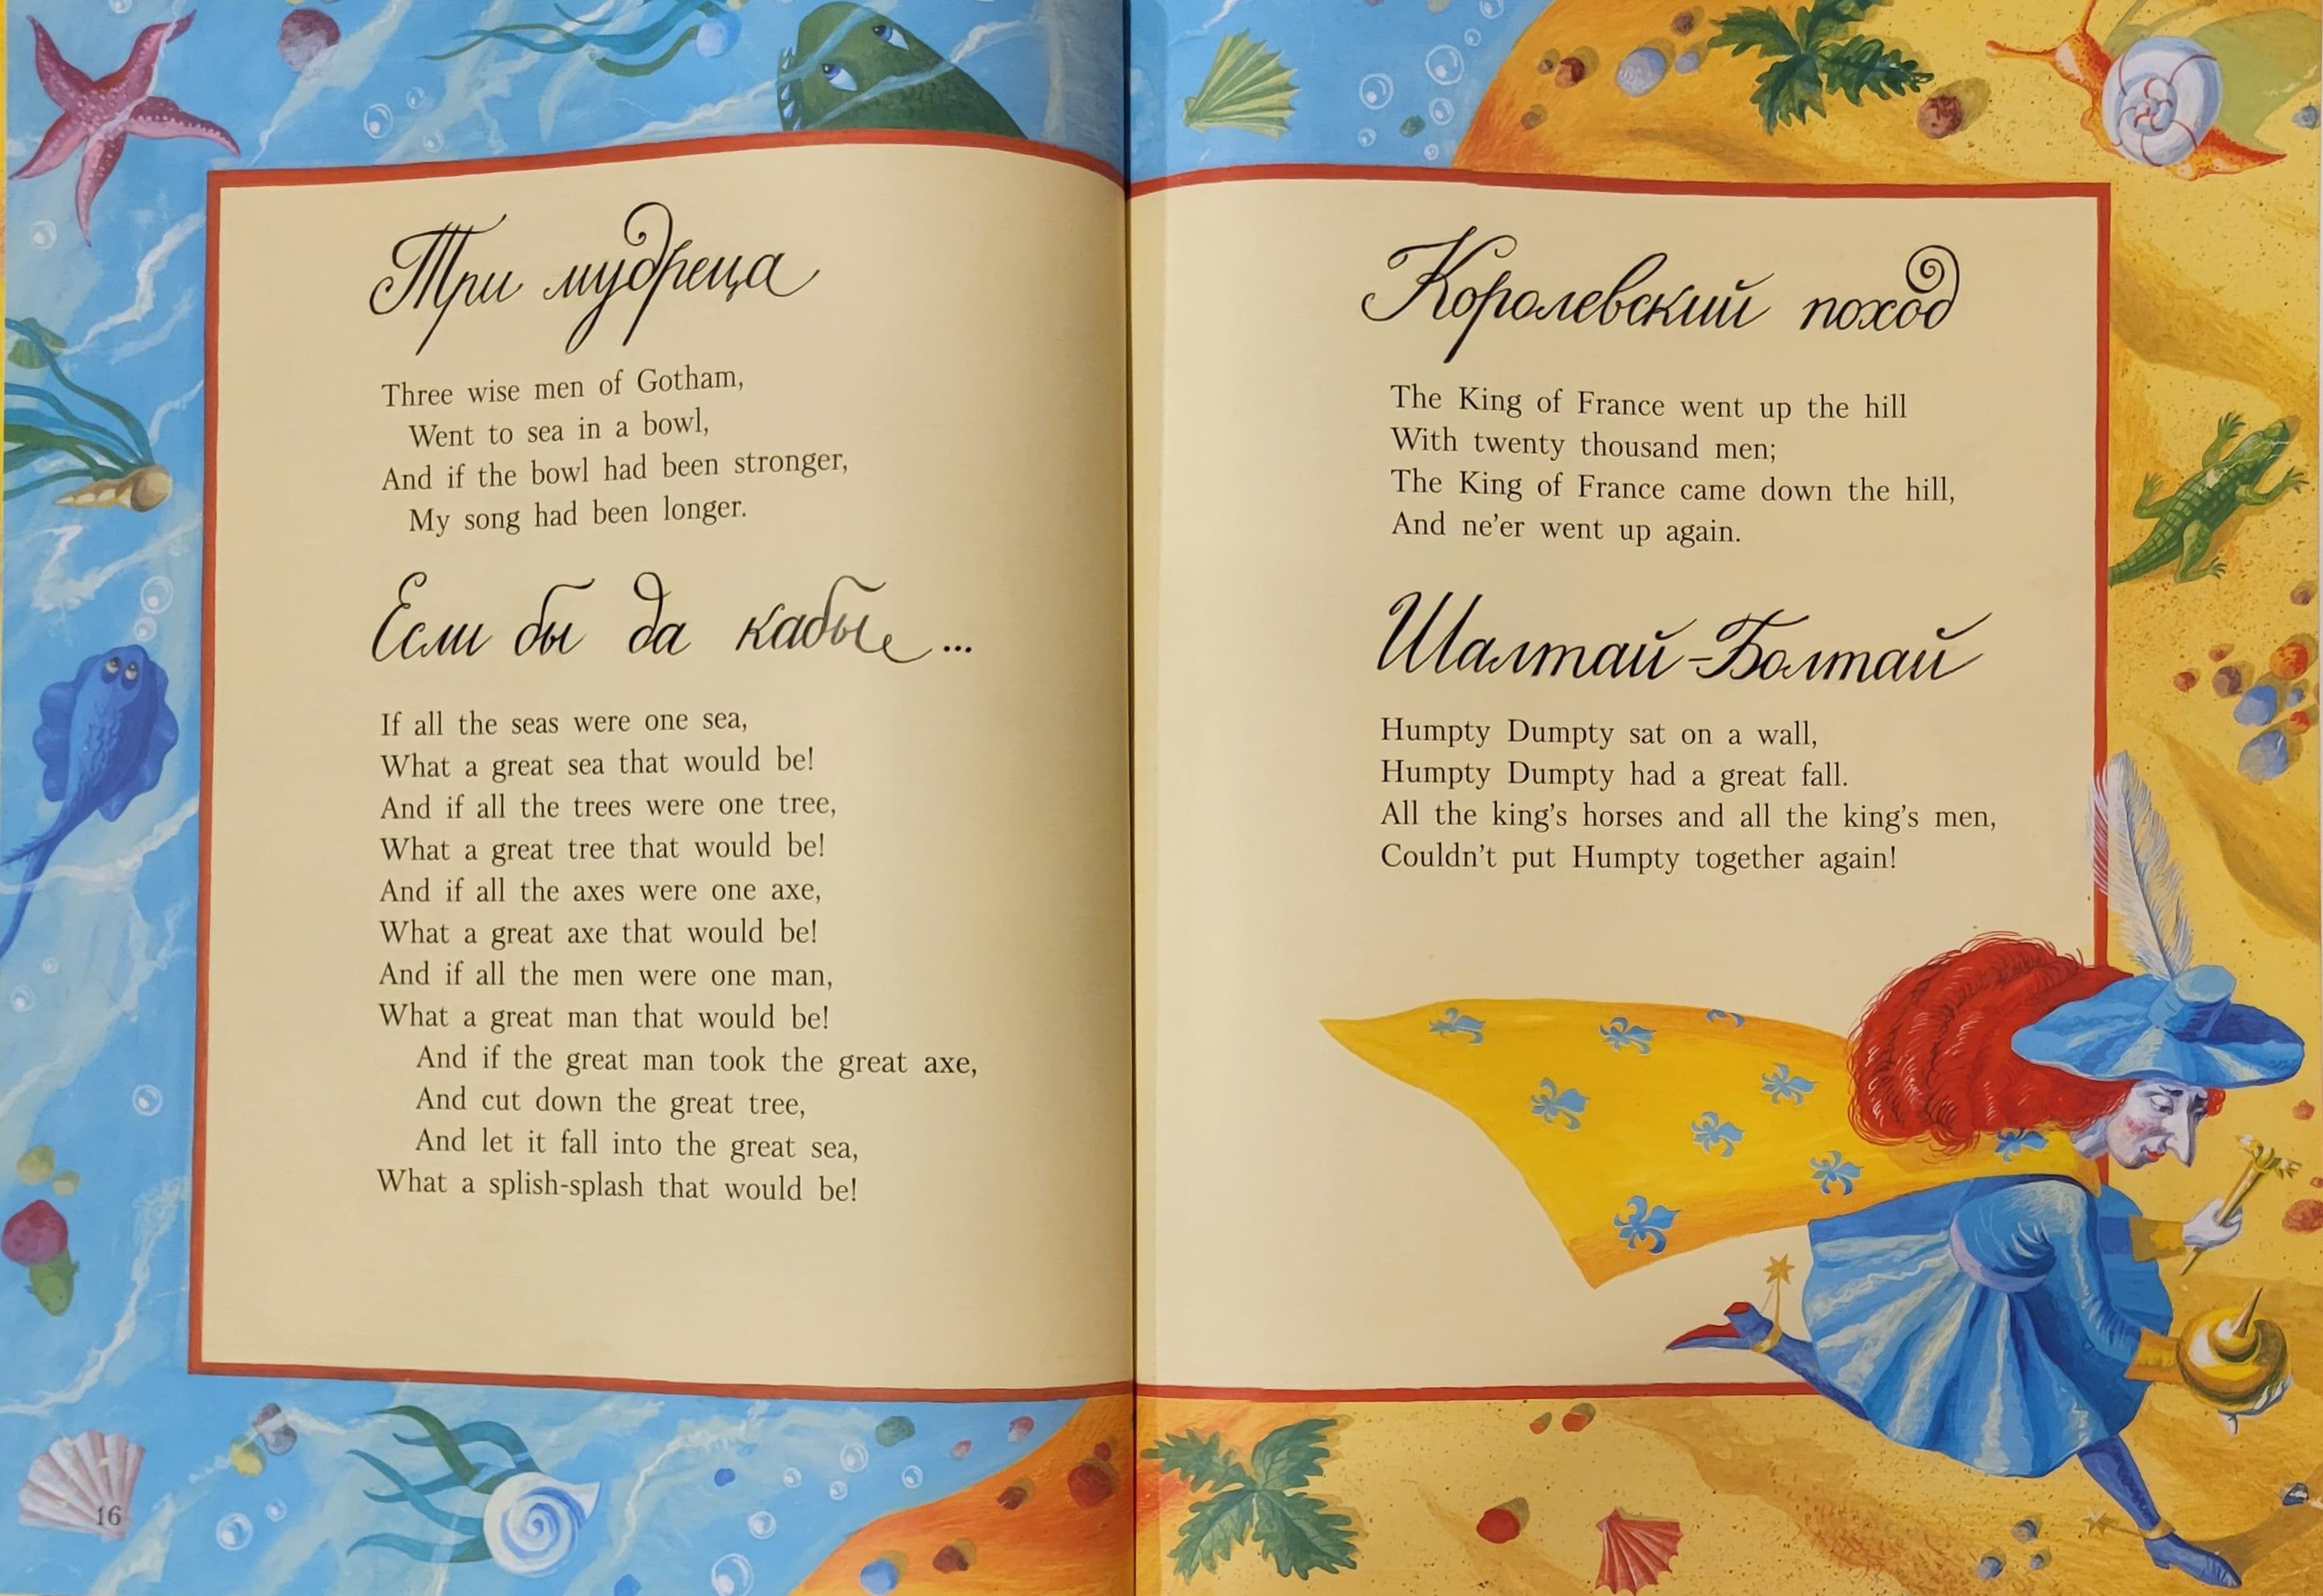 Три мудреца
Three wise men of Gotham,
Went to sea in a bowl,
And if the bowl had been stronger,
My song had been longer.
Если бы да кабы...
If all the seas were one sea,
What a great sea that would be!
And if all the trees were one tree,
What a great tree that would be!
And if all the axes were one axe,
What a great axe that would be!
And if all the men were one man,
What a great man that would be!
And if the great man took the great axe,
And cut down the great tree,
And let it fall into the great sea,
What a splish-splash that would be!
16
Королевский поход
The King of France went up the hill
With twenty thousand men;
The King of France came down the hill,
And ne’er went up again.
Шалтай-Болтай
Humpty Dumpty sat on a wall,
Humpty Dumpty had a great fall.
All the king’s horses and all the king’s men,
Couldn’t put Humpty together again!